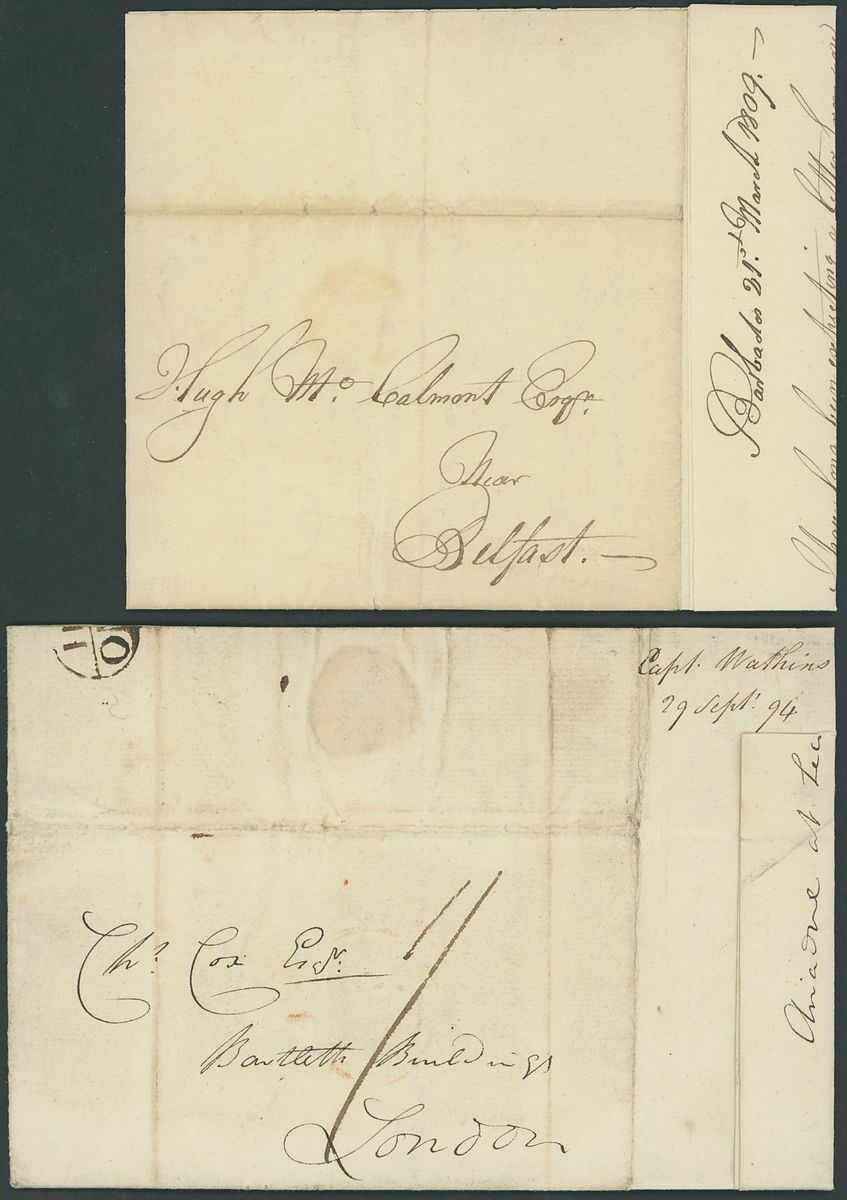 Hugh Mc. Calmont Esqr.
Near
Belfast.
Barbados 21st March 1809.
I have long been expecting a letter from
1 O
Capt. Watkins
29 Septr. 94
Ariadne at
Thos. Cox Esqr.
Bartletts Buildings
London